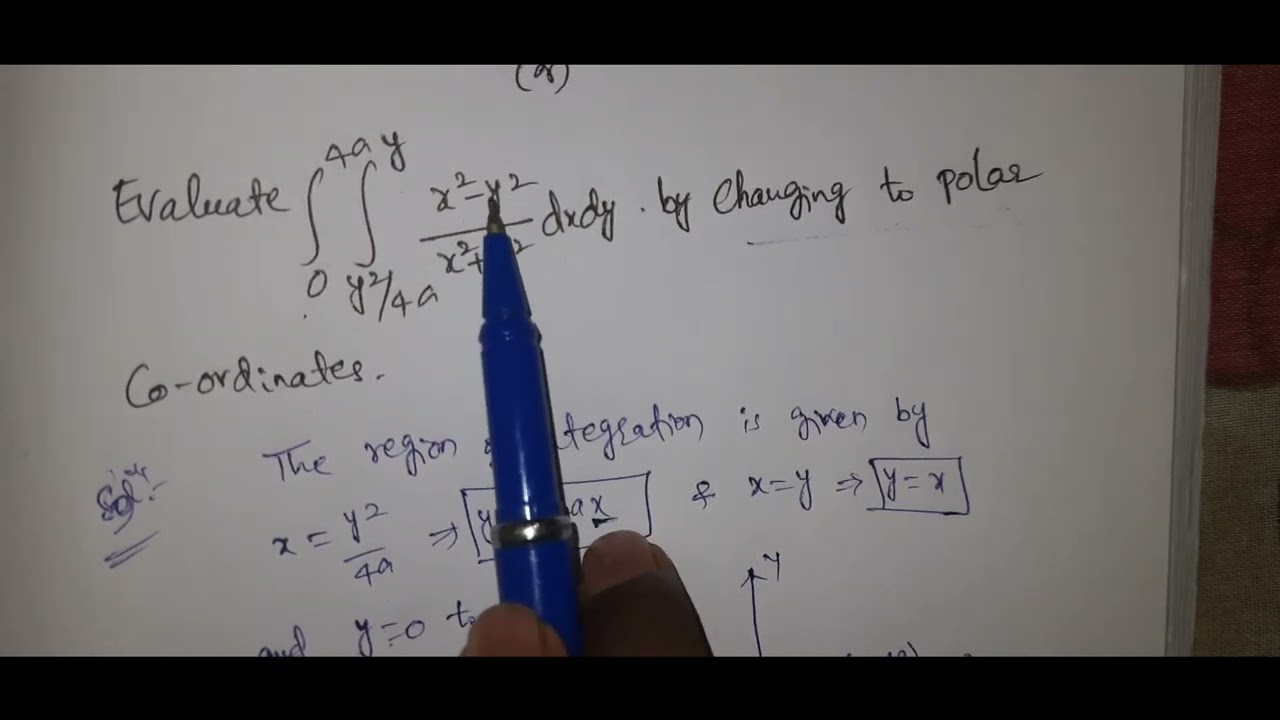 (or)
Evaluate ∫₀^4a ∫_y²/4a^y x²-y²/x²+y² dxdy. by changing to polar
Co-ordinates.
Solⁿ:- The region integration is given by
x = y²/4a ⇒ y ax & x=y ⇒ y=x
and y=0
y